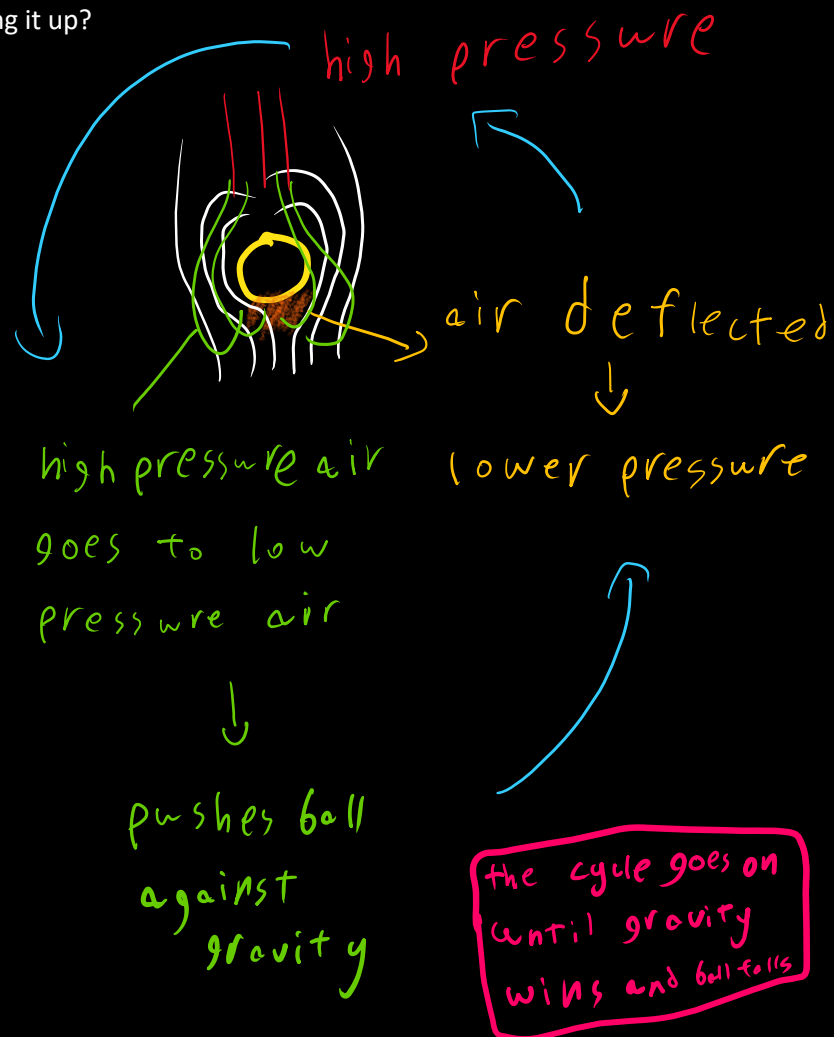 ng it up?
high pressure
air deflected
lower pressure
high pressure air
goes to low
pressure air
pushes ball
against
gravity
the cycle goes on
until gravity
wins and ball falls